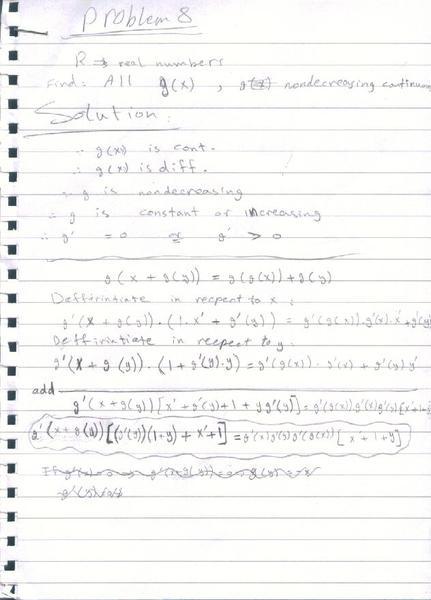 Problem 8
R → real numbers
Find: All g(x), nondecreasing continuous
Solution:
∵ g(x) is cont.
∴ g(x) is diff.
∵ g is nondecreasing
∴ g is constant or increasing
∴ g' = 0 or g' > 0
g(x + g(y)) = g(g(x)) + g(y)
Defferintiate in recpect to x:
g'(x + g(y)).(1.x' + g'(y)) = g'(g(x)).g'(x).x' + g'(y)
Deffirintiate in recpect to y:
g'(x + g(y)).(1 + g'(y).y) = g'(g(x)).g'(x) + g'(y)y'
add
g'(x + g(y))[x' + g'(y) + 1 + yg'(y)] = g'(g(x)).g'(x)g'(y)[x'+1+y]
g'(x + g(y))[(g'(y))(1+y) + x' + 1] = g'(x)g'(y)g'(g(x))[x + 1 + y]